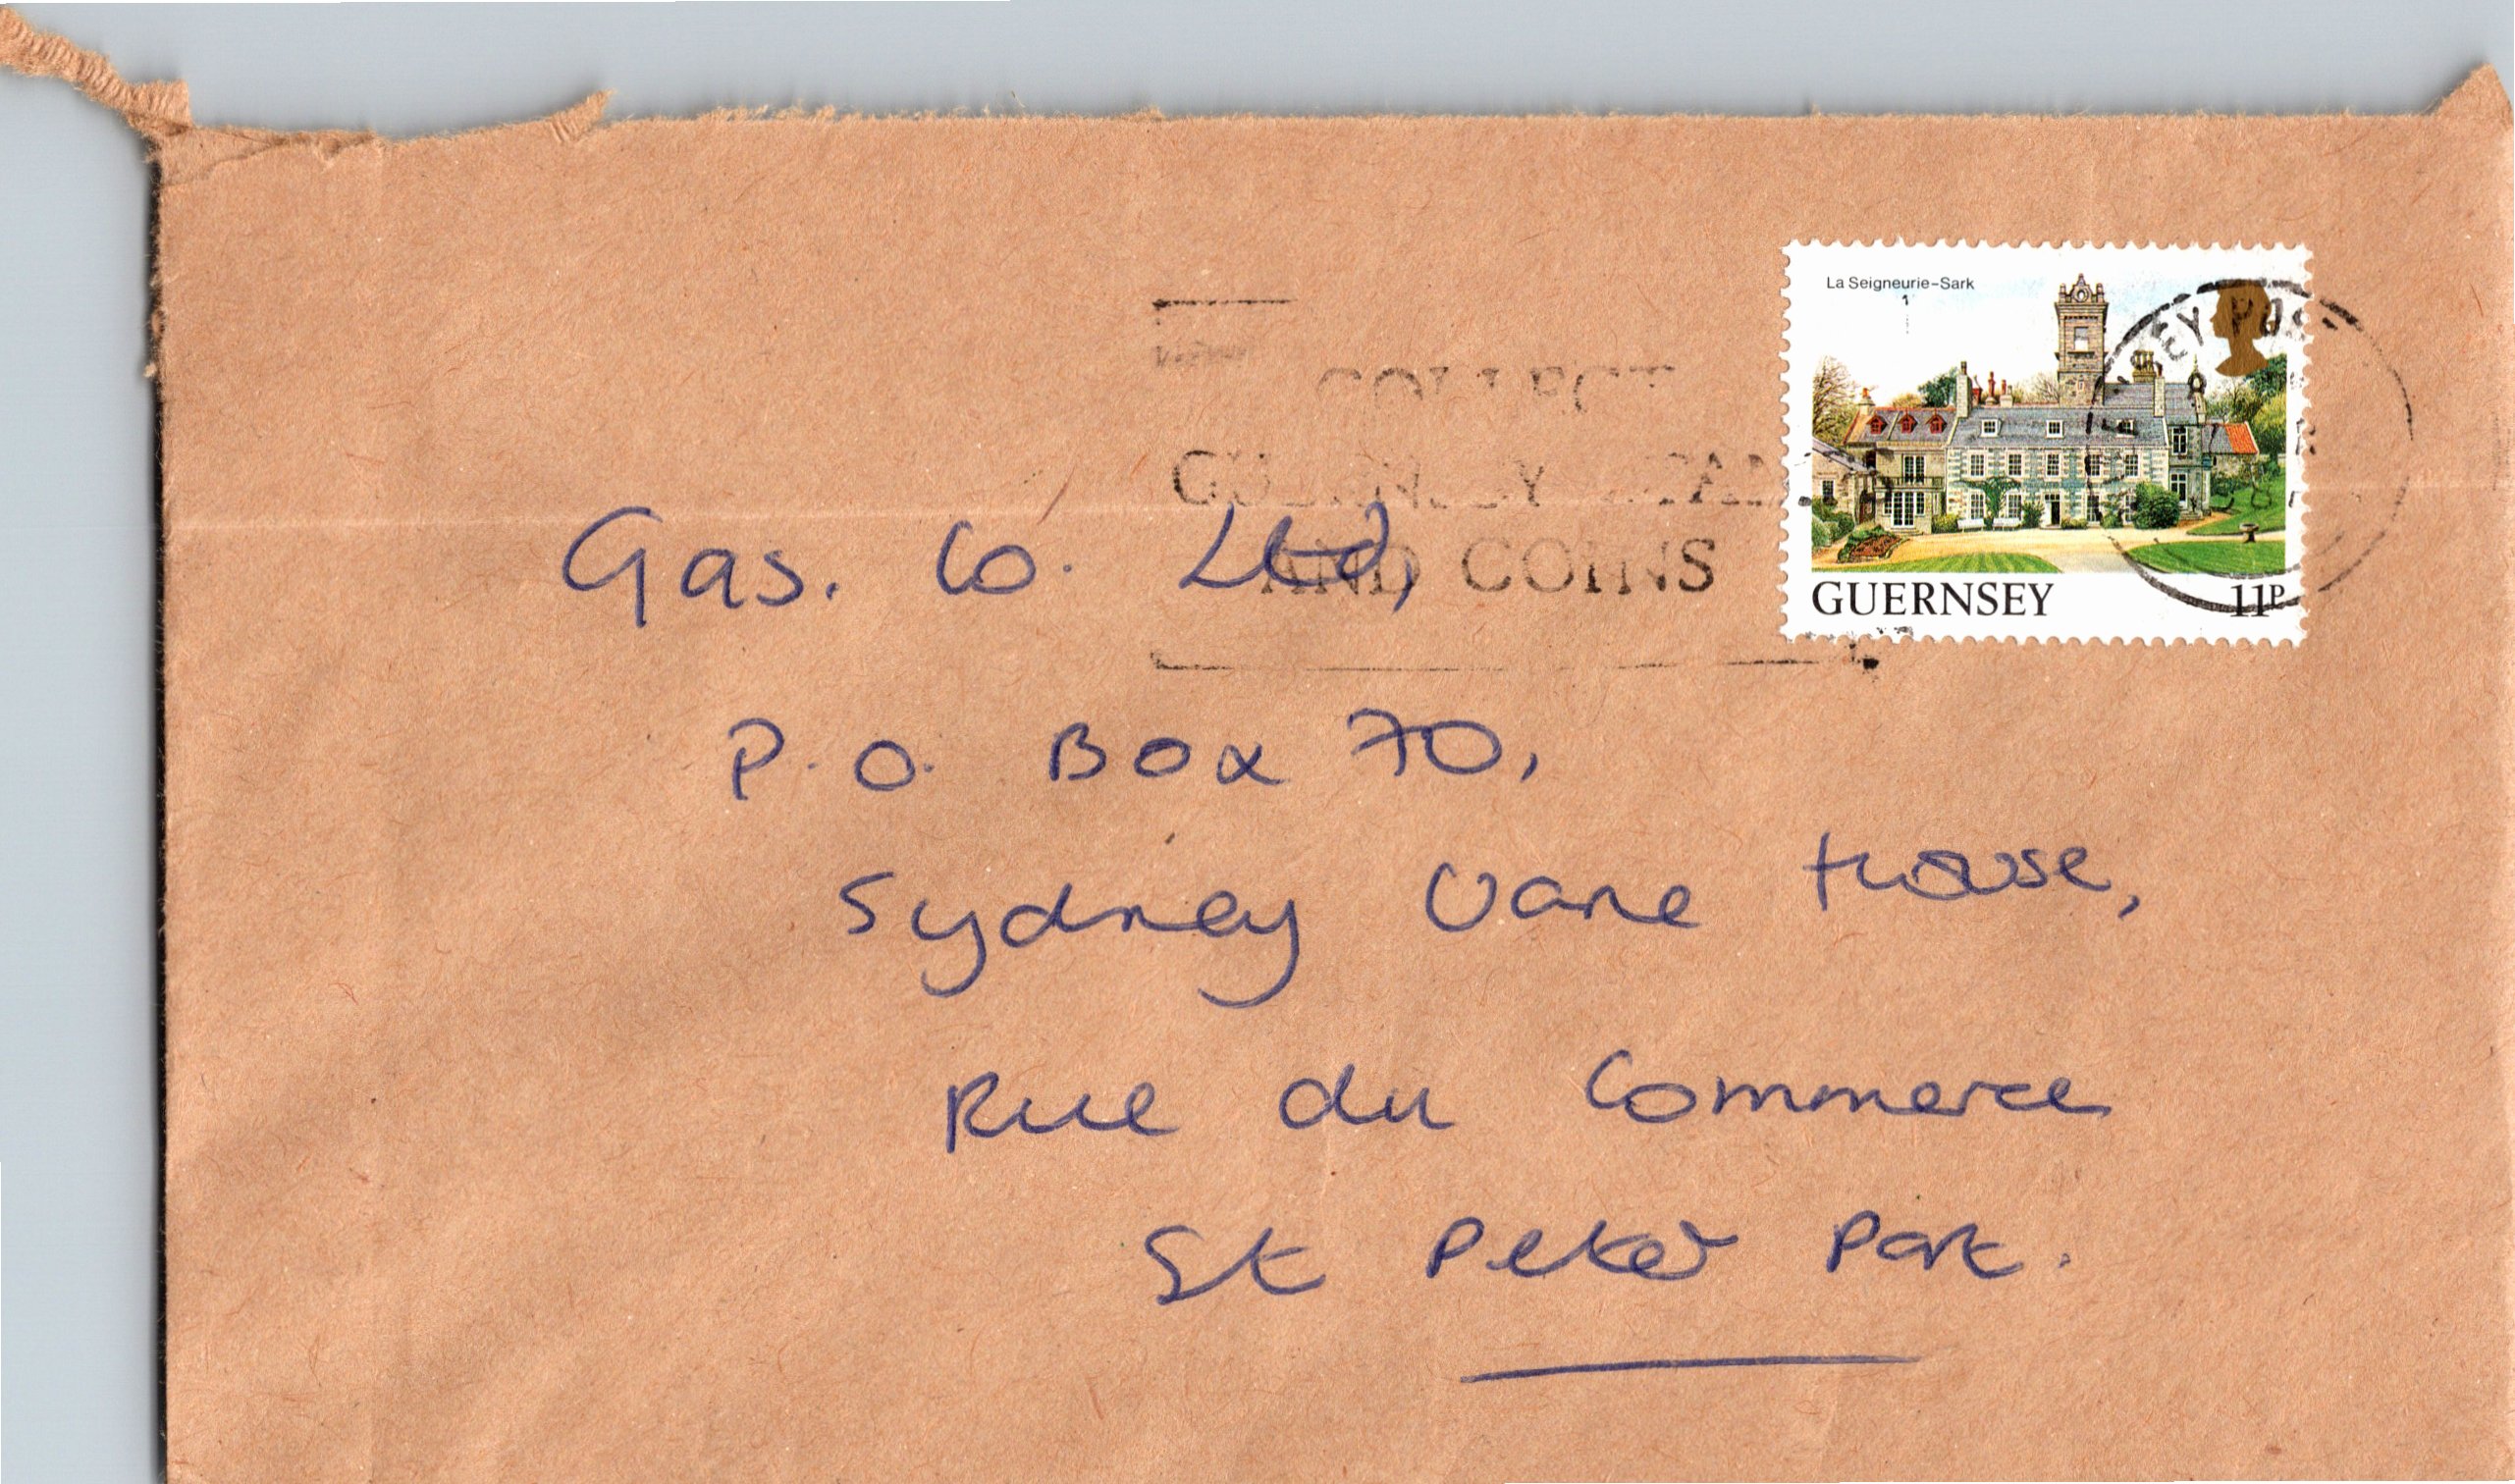 La Seigneurie-Sark
GUERNSEY
11P
COLLECT
GUERNSEY
AND COINS
Gas. Co. Ltd,
P.O. Box 70,
Sydney Vane House,
Rue du Commerce
St Peter Port.